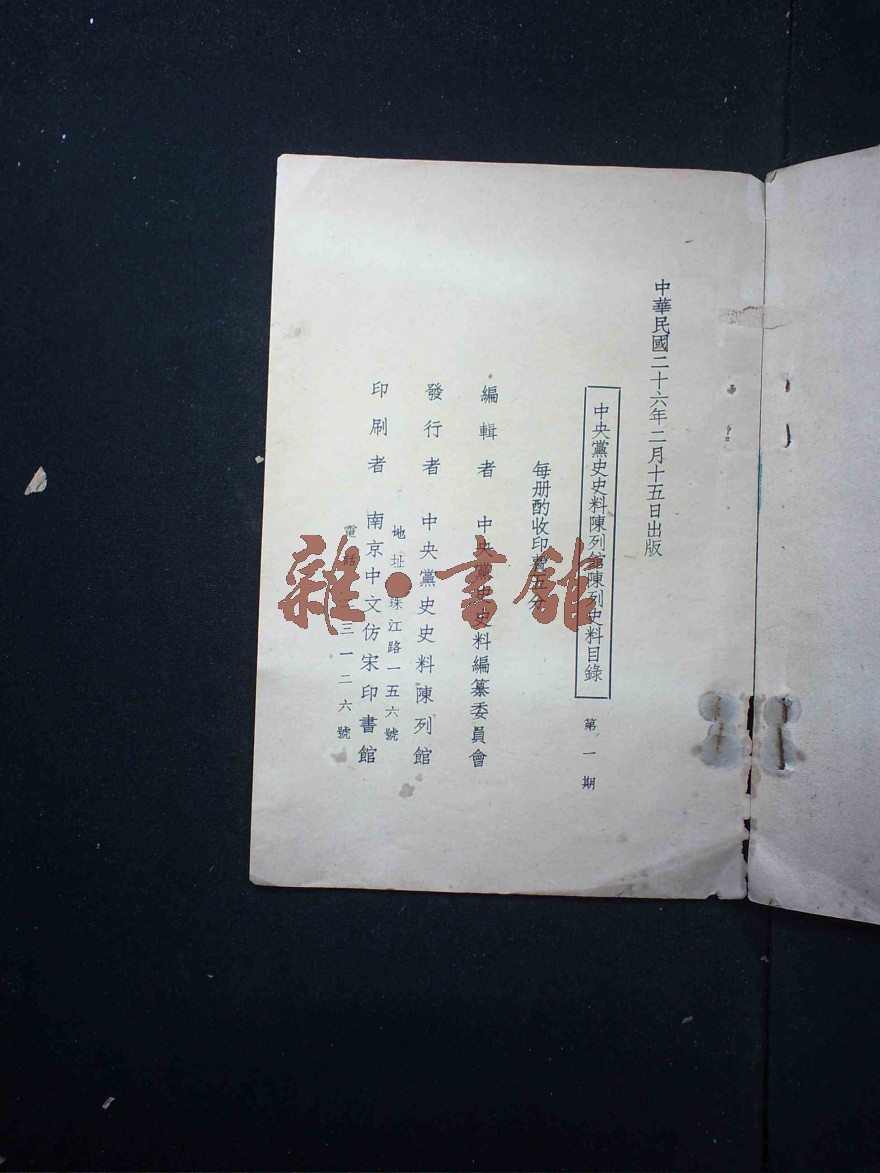 中華民國二十六年二月十五日出版
中央黨史史料陳列館陳列史料目錄 第一期
每册酌收印費五分
編輯者 中央黨史史料編纂委員會
發行者 中央黨史史料陳列館
地址珠江路一五六號
印刷者 南京中文仿宋印書館
電話 三一二六號
雜·書館